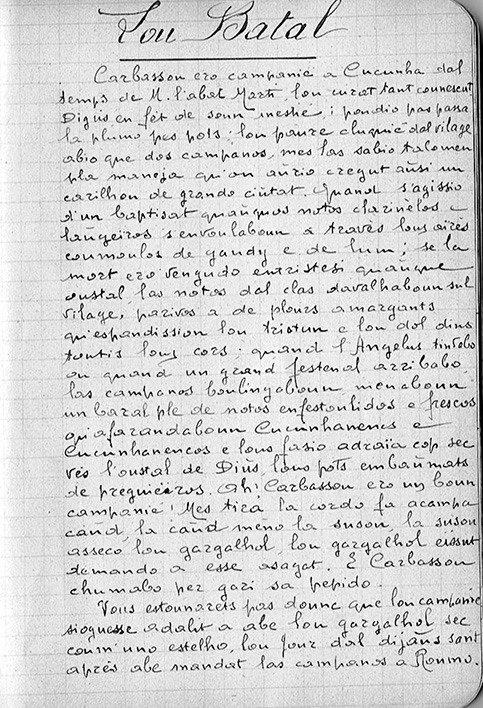 Lou Batal
Carbasson ero campanié a Cucunha dal
temps de M. l'abat Marti lou curat tant counescut
Digus en fèt de soun mestié i poudio pas passa
la plumo pes pots: lou paure cluquié dal vilage
abio que dos campanos, mes las sabio talomen
pla maneja qu'on aurio cregut ausi un
carilhou de grando ciutat. Quand s'agissio
d'un baptisat quauquos notos clarinelos e
laugeiros s'envoulaboun a través lous aires
coumoulos de gaudy e de lum; se la
mort ero vengudo entristesi quauque
oustal, las notos dal clas davalhaboun sul
vilage, parivos a de plours amargants
qu'espandission lou tristun e lou dol dins
toutis lous cors: quand l'Angelus tintabo
ou quand un grand festenal arribabo,
las campanos boulingaboun menaboun
un baral ple de notos enfestoulidos e frescos
qu'afarandaboun Cucunhanencs e
Cucunhanencos e lous fasio adraia cop sec
vès l'oustal de Diùs, lous pots embaùmats
de preguièiros. Ah! Carbasson ero un boun
campanié! Mes tira la cordo fa acampa
càud, la càud meno la susou, la susou
asseco lou gargalhol, lou gargalhol eissut
demando a esse asagat. E Carbasson
chumabo per gari sa pepido.
Vous estounarets pas dounc que lou campanié
sioguesse adalit a abe lou gargalhol sec
coum' uno estelho, lou jour dal dijaùs sant
après abe mandat las campanos a Roumo.